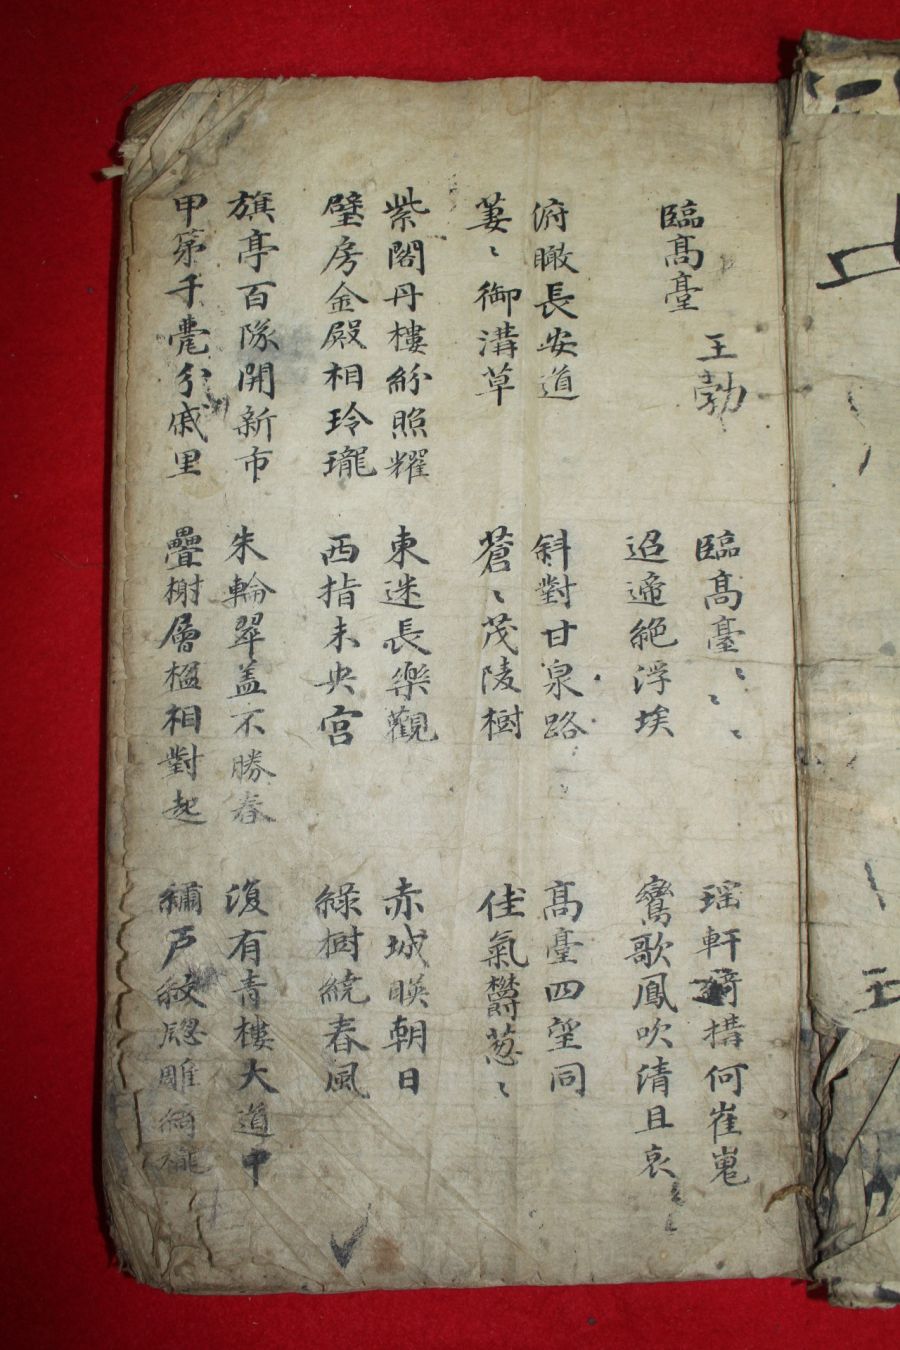 臨高臺
王勃
臨高臺〻〻〻
迢遆絕浮埃
瑤軒綺構何崔嵬
鸞歌鳳吹清且哀
俯瞰長安道
萋〻御溝草
斜對甘泉路
蒼〻茂陵樹
高臺四望同
佳氣鬱葱〻
紫閣丹樓紛照耀
璧房金殿相玲瓏
東迷長樂觀
西指未央宮
赤城暎朝日
綠樹繞春風
旗亭百隊開新市
甲第千甍分戚里
朱輪翠盖不勝春
疊榭層楹相對起
復有青樓大道中
繡戶紋窓雕綺櫳